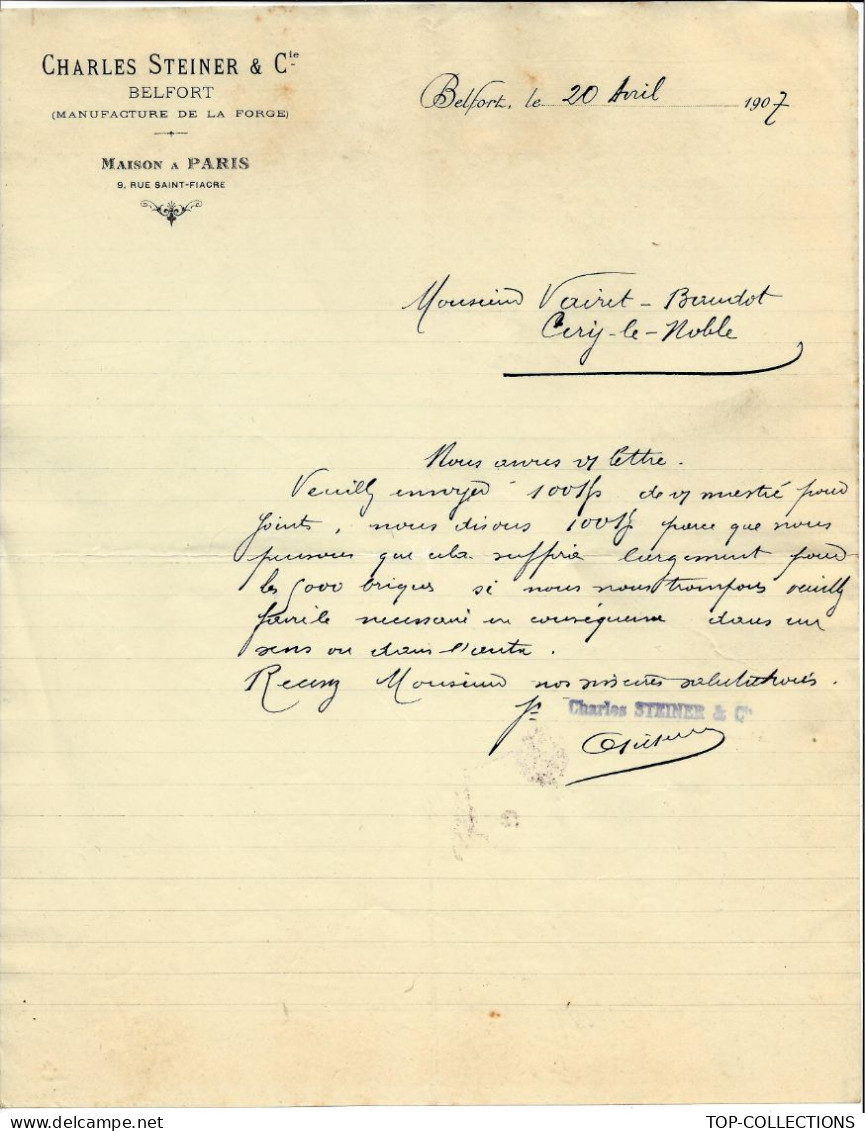 CHARLES STEINER & Cie
BELFORT
(MANUFACTURE DE LA FORGE)
MAISON A PARIS
9, RUE SAINT-FIACRE
Belfort, le 20 Avril 1907
Monsieur Vairet-Baudot
Ciry-le-Noble
Nous avons v/ lettre.
Veuillez envoyer 100 de v/ pour
joints, nous disons 100 parce que nous
pensons que cela suffira largement pour
les 5000 briques si nous nous trompons veuillez
faire le necessaire en conséquence dans un
sens ou dans l'autre.
Recevez Monsieur nos sincères salutations.
Pr Charles STEINER & Cie
TOP-COLLECTIONS